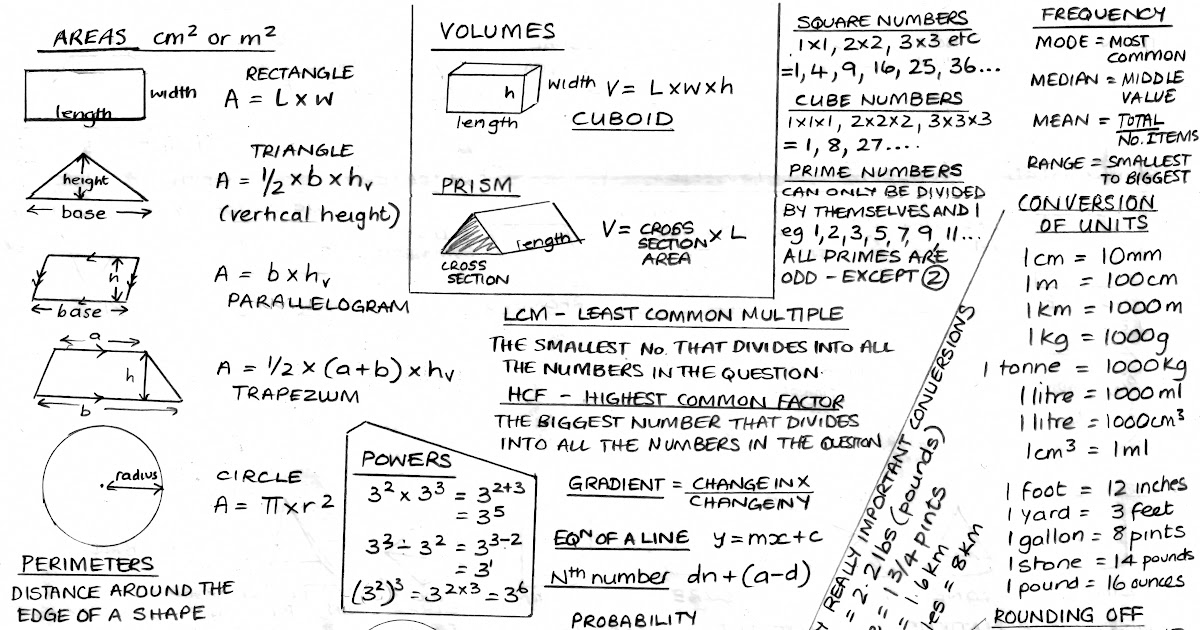 AREAS cm² or m²
RECTANGLE
width
A = L x w
length
TRIANGLE
height
A = 1/2 x b x hv
base
(vertical height)
h
A = b x hv
base
PARALLELOGRAM
a
h
A = 1/2 x (a+b) x hv
TRAPEZIUM
b
CIRCLE
radius
A = π x r²
PERIMETERS
DISTANCE AROUND THE
EDGE OF A SHAPE
VOLUMES
h
width
V = L x w x h
length
CUBOID
PRISM
length
V = CROSS SECTION AREA x L
CROSS
SECTION
LCM - LEAST COMMON MULTIPLE
THE SMALLEST No. THAT DIVIDES INTO ALL
THE NUMBERS IN THE QUESTION.
HCF - HIGHEST COMMON FACTOR
THE BIGGEST NUMBER THAT DIVIDES
INTO ALL THE NUMBERS IN THE QUESTION
POWERS
3² x 3³ = 3²⁺³
= 3⁵
3³ ÷ 3² = 3³⁻²
= 3¹
(3²)³ = 3²ˣ³ = 3⁶
GRADIENT = CHANGE IN X
CHANGE IN Y
EQN OF A LINE y = mx + c
Nth number dn + (a-d)
PROBABILITY
SQUARE NUMBERS
1x1, 2x2, 3x3 etc
=1, 4, 9, 16, 25, 36...
CUBE NUMBERS
1x1x1, 2x2x2, 3x3x3
= 1, 8, 27....
PRIME NUMBERS
CAN ONLY BE DIVIDED
BY THEMSELVES AND 1
eg 1, 2, 3, 5, 7, 9, 11...
ALL PRIMES ARE
ODD - EXCEPT 2
REALLY IMPORTANT CONVERSIONS
= 2.2 lbs (pounds)
= 1 3/4 pints
= 1.6 km
= 8 km
FREQUENCY
MODE = MOST
COMMON
MEDIAN = MIDDLE
VALUE
MEAN = TOTAL
No. ITEMS
RANGE = SMALLEST
TO BIGGEST
CONVERSION
OF UNITS
1 cm = 10mm
1m = 100cm
1km = 1000m
1kg = 1000g
1 tonne = 1000kg
1 litre = 1000 ml
1 litre = 1000cm³
1cm³ = 1ml
1 foot = 12 inches
1 yard = 3 feet
1 gallon = 8 pints
1 stone = 14 pounds
1 pound = 16 ounces
ROUNDING OFF